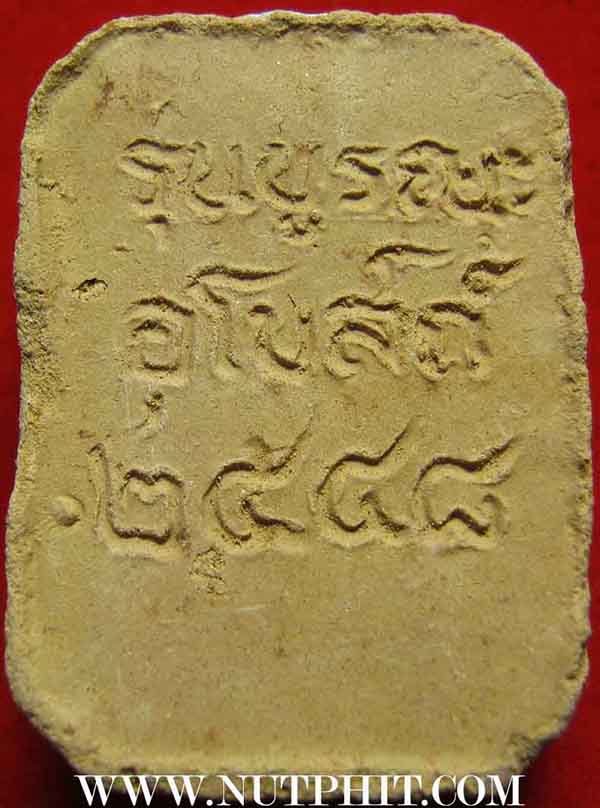 รุ่นบูรณะ
อุโบสถ์
๒๕๔๘
WWW.NUTPHIT.COM